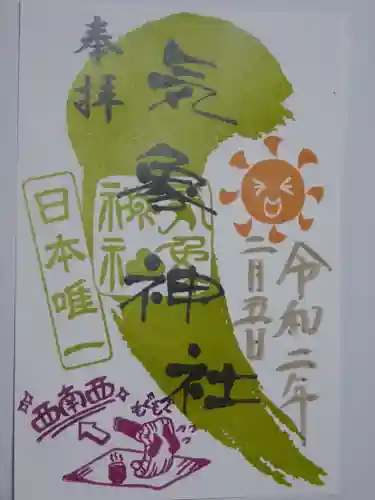 奉拝
気象神社
日本唯一
令和二年
二月五日
西南西
もぐもぐ